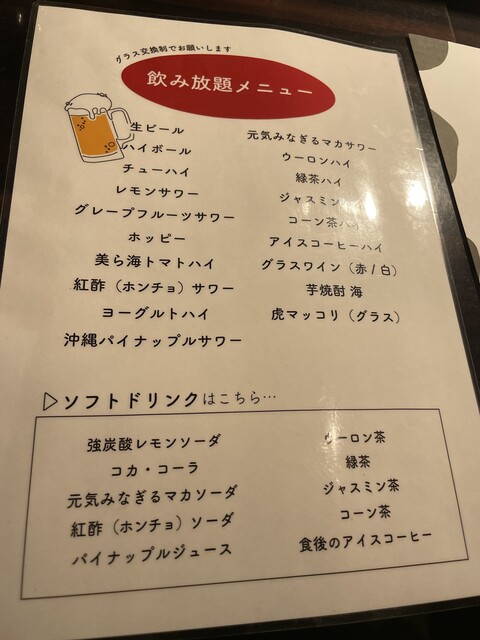 グラス交換制でお願いします
飲み放題メニュー
生ビール
ハイボール
チューハイ
レモンサワー
グレープフルーツサワー
ホッピー
美ら海トマトハイ
紅酢（ホンチョ）サワー
ヨーグルトハイ
沖縄パイナップルサワー
元気みなぎるマカサワー
ウーロンハイ
緑茶ハイ
ジャスミン
コーン茶ハイ
アイスコーヒーハイ
グラスワイン（赤/白）
芋焼酎 海
虎マッコリ（グラス）
▷ソフトドリンクはこちら…
強炭酸レモンソーダ
コカ・コーラ
元気みなぎるマカソーダ
紅酢（ホンチョ）ソーダ
パイナップルジュース
ウーロン茶
緑茶
ジャスミン茶
コーン茶
食後のアイスコーヒー